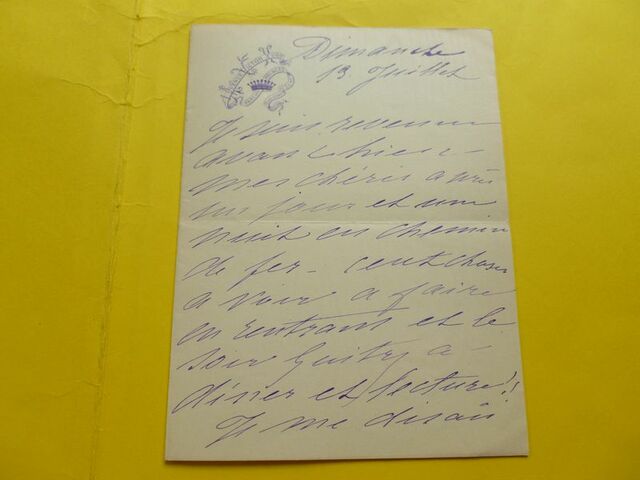 Dimanche
13 Juillet
Je suis revenue
avant hier –
mes chéris après
un jour et une
nuit en chemin
de fer – cent choses
a voir a faire
en rentrant et le
soir Guitry a
diner et lecture !!
Je me disais